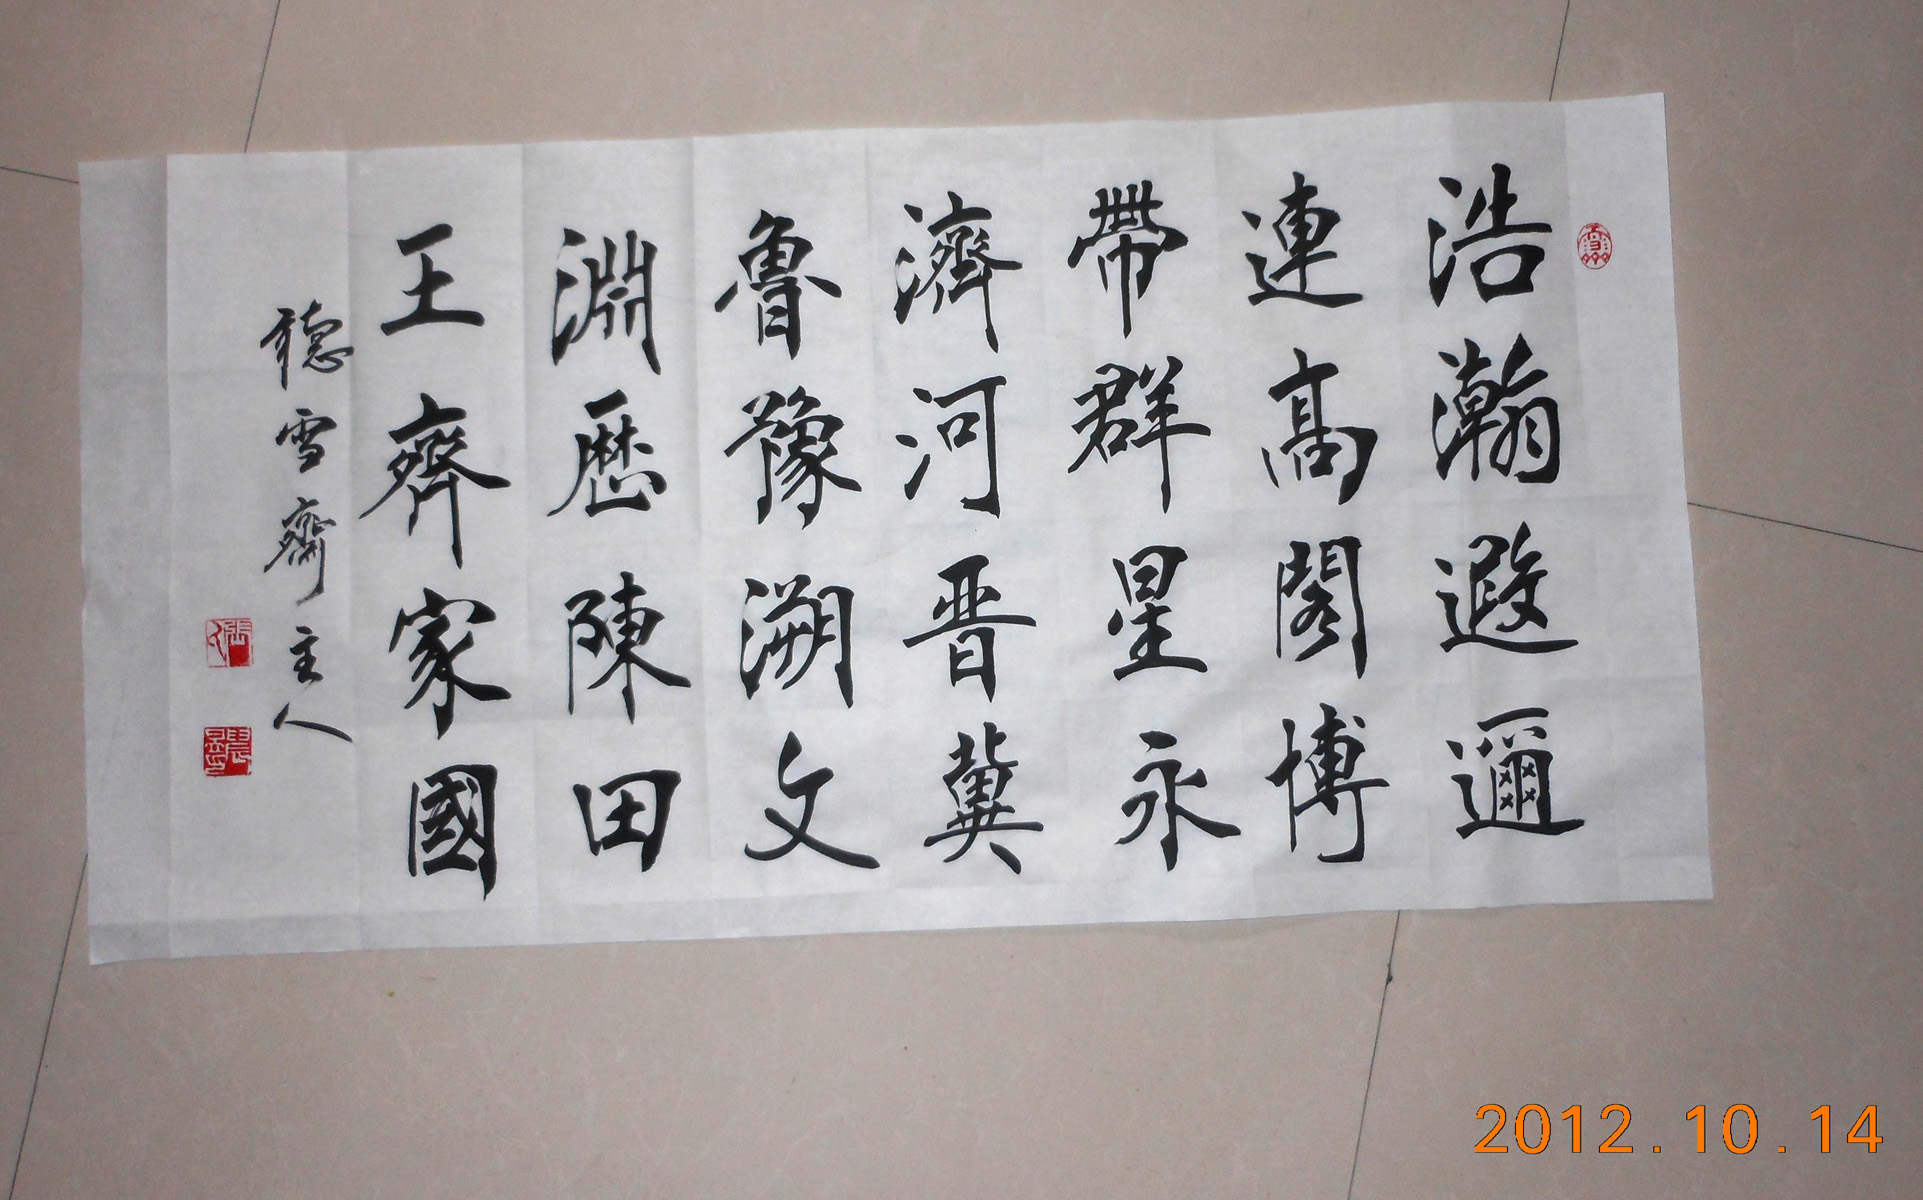 浩瀚遐邇
連高閣博
帶群星永
濟河晋冀
魯豫溯文
淵歷陳田
王齊家國
聽雪齋主人
2012.10.14